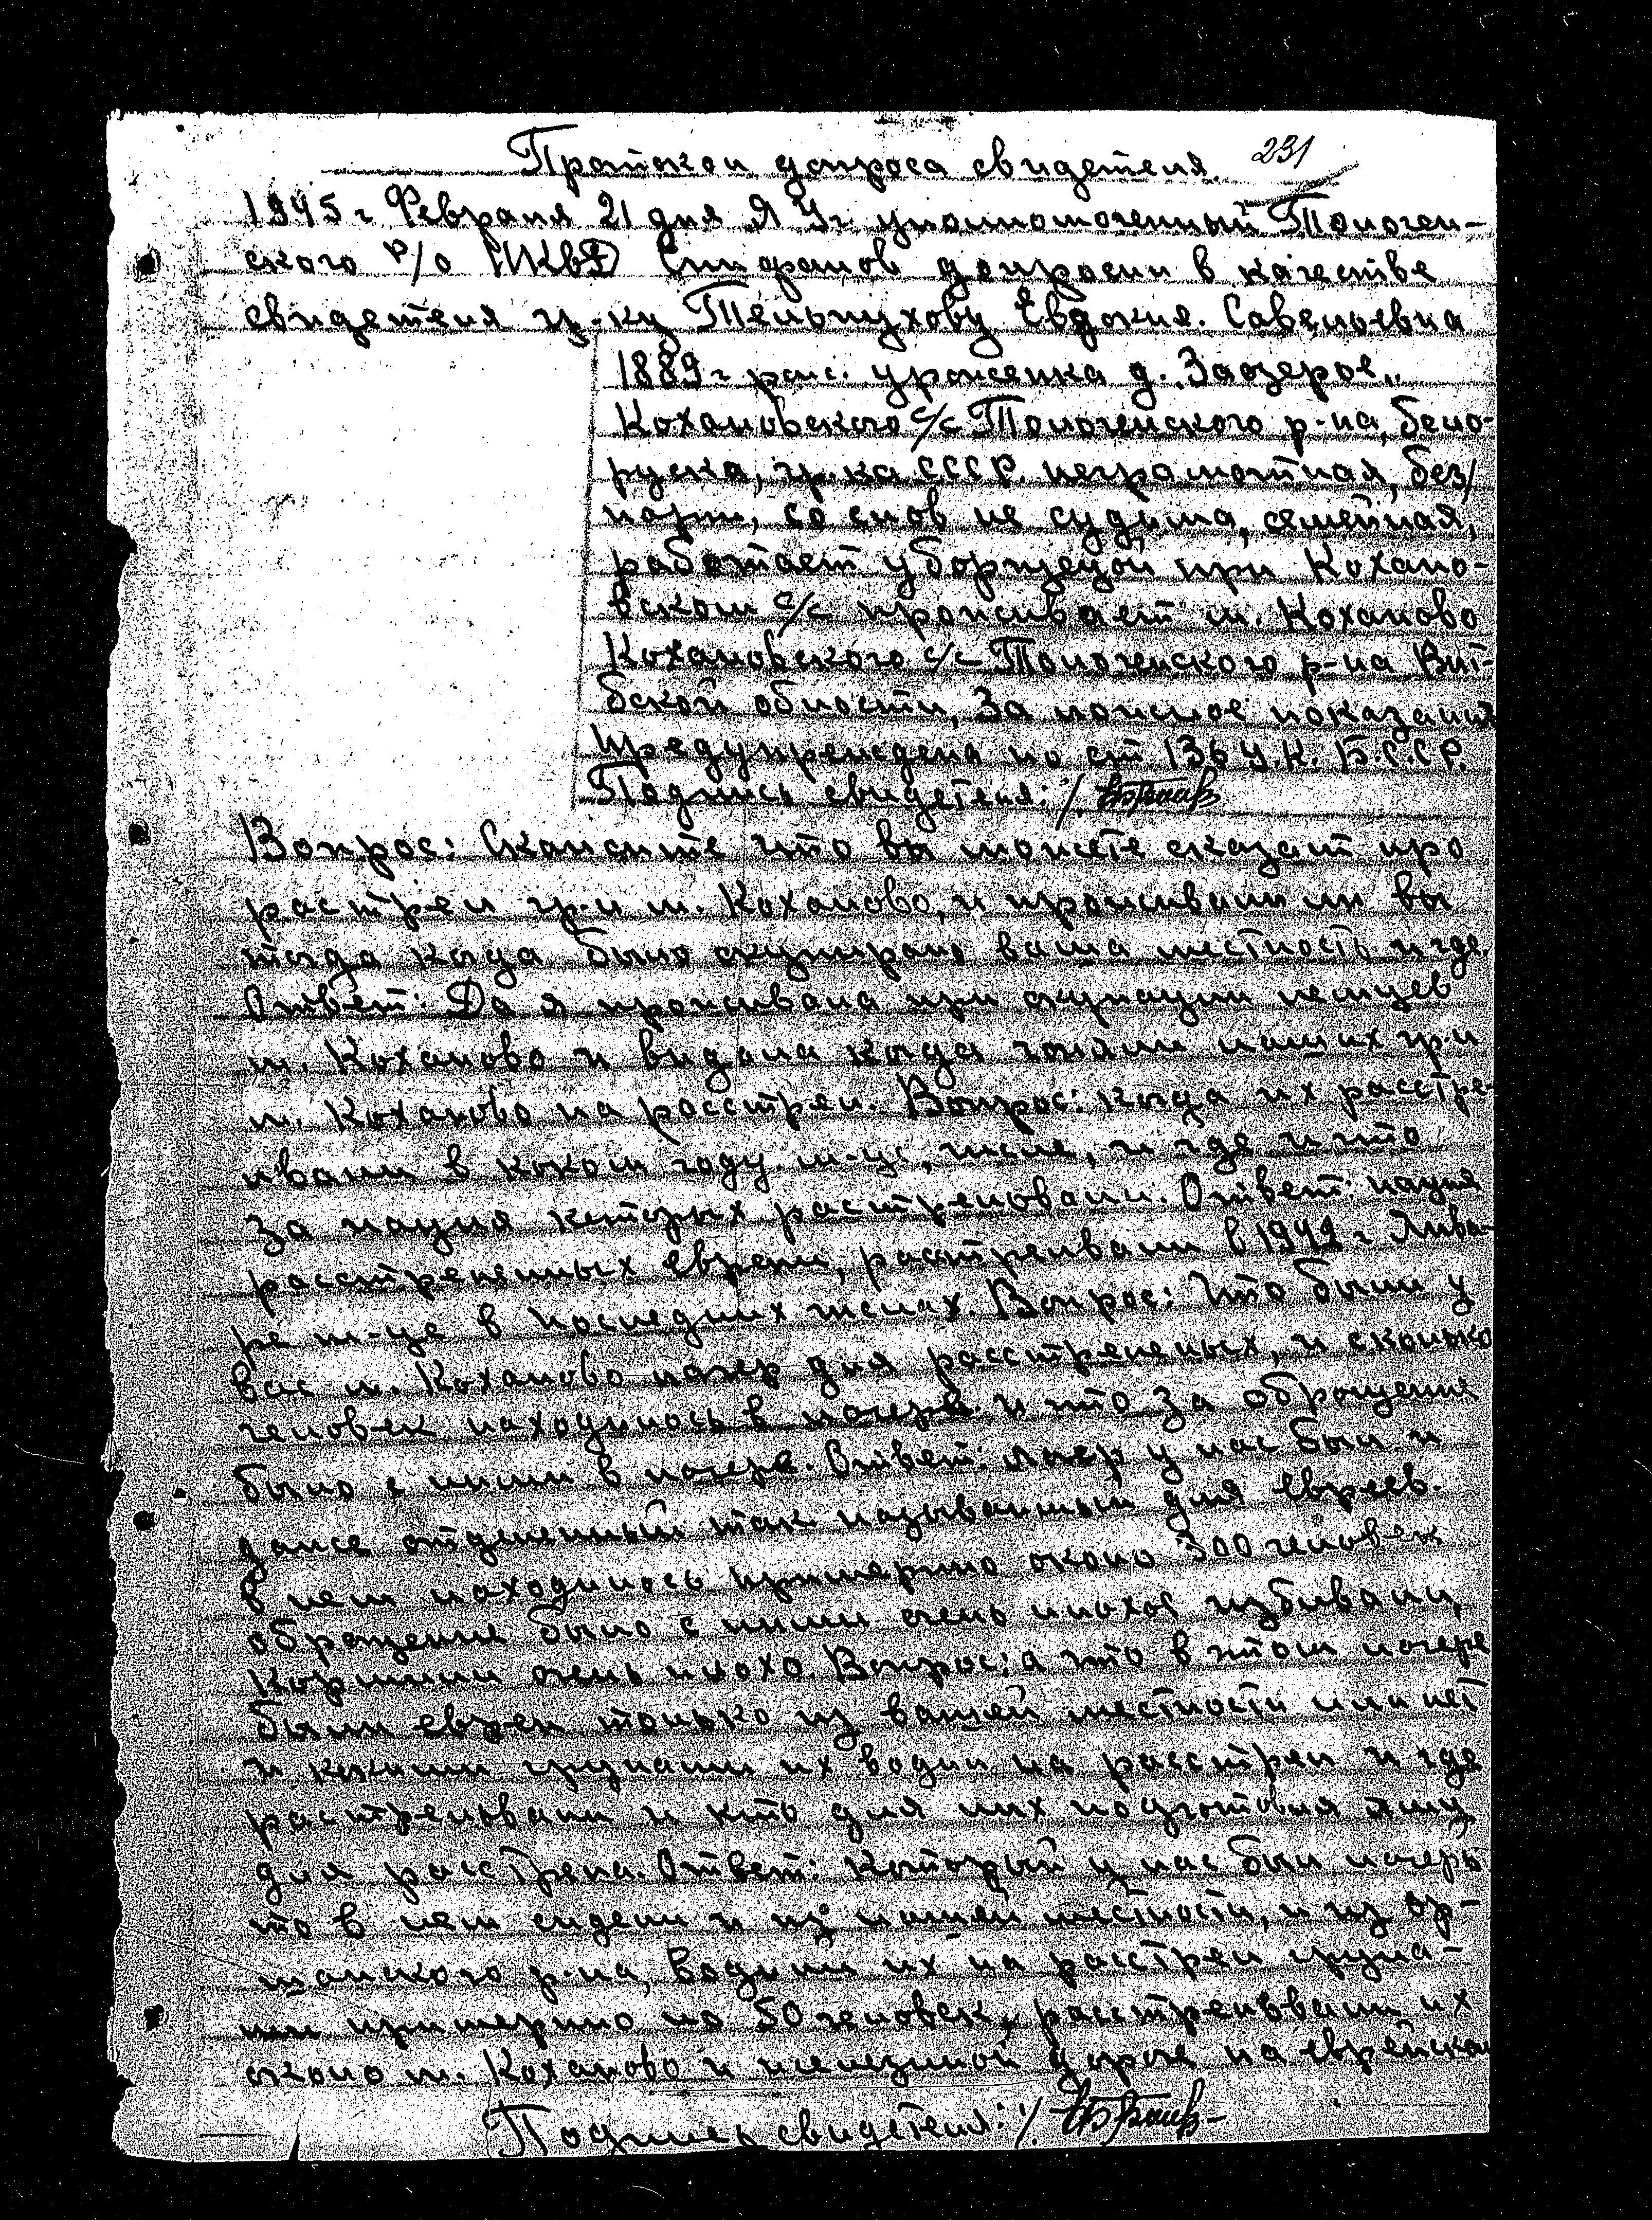 Протокол допроса свидетеля. 231
1945 г. Февраля 21 дня Я Уч уполномоченный Толочен-
ского р/о НКВД допросил в качестве
свидетеля гр-ку Тельпухову Евдокия. Савельевна
1889 г рож. уроженка д. Заозерое,
Кохановского с/с Толоченского р-на, бело-
руска, гр. ка СССР. неграмотная, без/
парт, со слов не судьма, семейная,
работает уборщецой при Кохано-
вском с/с проживает м. Коханово
Кохановского с/с Толоченского р-на Вит-
бской области, За ложное показания
предупреждена по ст 136 У.К. Б.С.С.Р.
Подпись свидетеля: /.
Вопрос: Скажите что вы можете сказат про
растрел гр-н м. Коханово, и проживали ли вы
тогда когда было окупирано ваша местность и где.
Ответ: Да я проживала при окупации немцев
м. Коханово и видала когда гоняли наших гр-н
м. Коханово на расстрел. Вопрос: когда их расстре-
ливали в коком году. м-це, числе, и где и што
за нацыя которых растрелювали. Ответ: нацыя
расстреленных евреи, расстреливали в 1942 г Янва-
ре м-це в последних числах. Вопрос: Што был у
вас м. Коханово лагер для расстреленых, и сколько
человек находилось в лагере и што за оброщение
было с ними в лагере. Ответ: лагер у нас был и
даже отделенный так называимый для евреев.
В нем находилось примерно около 300 человек
оброщение было с ними очень плохое избивали,
Кормили очень плохо. Вопрос: а што в этом лагере
были евреи только из вашей местности или нет
и какими групами их водил на расстрел и где
растрелювали и кто для них подготовля яму
для расстрела. Ответ: Который у нас был лагерь
то в нем сидели и из нашей местности, и из Ор-
шанского р-на, водили их на расстрел група-
ми примерно по 50 человек, расстреливали их
около м. Коханово и железной дороге на еврейском
Подпись свидетеля: /.